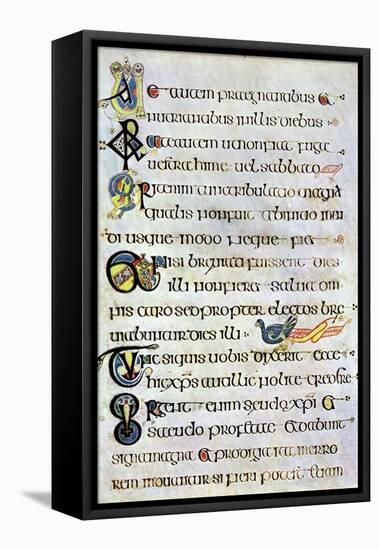 Ae autem praegnantibus &
nutrientibus in illis diebus
Orate autem ut non fiat fuga
uestra hieme uel sabbato
Erit enim tunc tribulatio magna
qualis non fuit ab initio mun
di usque modo neque fi&
&nisi breuiati fuissent dies
illi non fier& salua om
nis caro sed propter electos bre
uiabuntur dies illi
Tunc si quis uobis dixerit ecce
hic xps aut illic nolite credere
surgent enim seudo xpi &
seudo profetae & dabunt
signa magna & prodigia ita
rem moueantur si fieri potest etiam